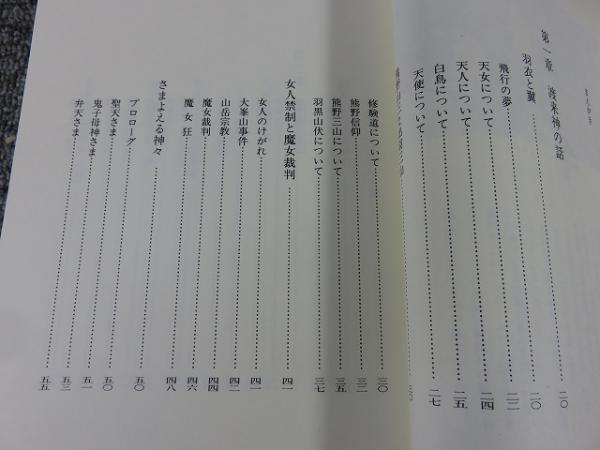 まえがき
第一章 渡来神の話 二〇
羽衣と翼 二〇
飛行の夢 二二
天女について 二四
天人について 二五
白鳥について 二七
天使について
修験道について 三〇
熊野信仰 三二
熊野三山について 三五
羽黒山伏について 三七
女人禁制と魔女裁判 四一
女人のけがれ 四一
大峯山事件 四二
山岳宗教 四四
魔女裁判 四六
魔女狂 四八
さまよえる神々 五〇
プロローグ 五〇
聖天さま 五一
鬼子母神さま 五三
弁天さま 五五